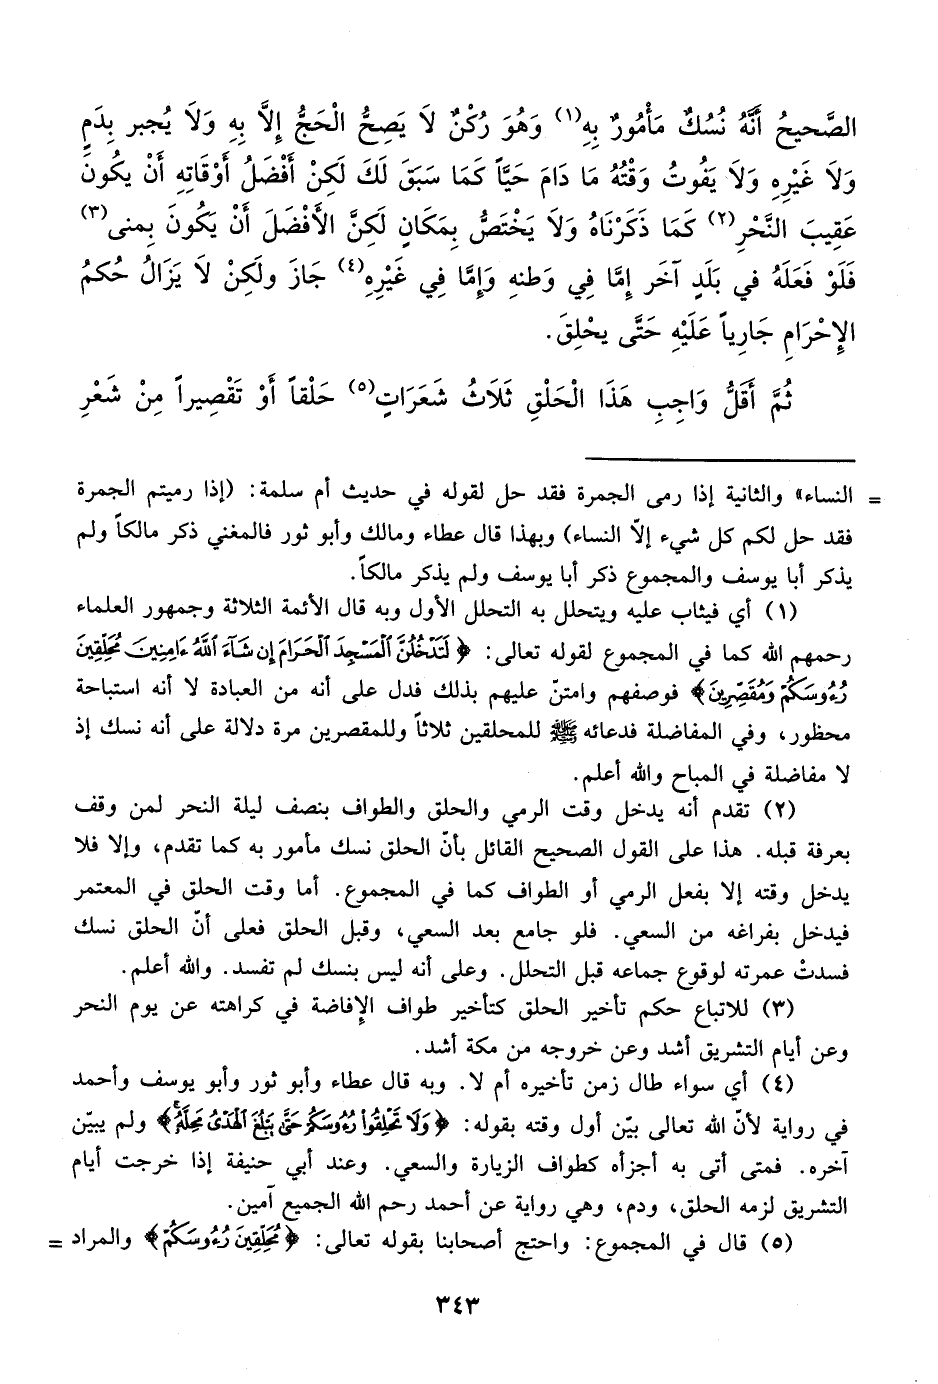 الصَّحيحُ أَنَّهُ نُسُكٌ مَأْمُورٌ بِهِ(١) وَهُوَ رُكْنٌ لَا يَصِحُّ الْحَجُّ إِلَّا بِهِ وَلَا يُجبر بِدَمٍ
وَلَا غَيْرِهِ وَلَا يَفُوتُ وَقْتُهُ مَا دَامَ حَيّاً كَمَا سَبَقَ لَكَ لَكِنْ أَفْضَلُ أَوْقَاتِهِ أَنْ يكُونَ
عَقِيبَ النَّحْرِ(٢) كَمَا ذَكَرْنَاهُ وَلَا يَخْتَصُّ بِمَكَانٍ لَكِنَّ الأَفْضَلَ أَنْ يَكُونَ بِمنى(٣)
فَلَوْ فَعَلَهُ في بَلَدٍ آخَر إِمَّا فِي وَطنهِ وَإِمَّا فِي غَيْرِهِ(٤) جَازَ ولَكِنْ لَا يَزَالُ حُكمُ
الإِحْرَامِ جَارِياً عَلَيْهِ حَتَّى يحْلِقَ.
ثُمَّ أَقَلُّ وَاجِبِ هَذَا الْحَلْقِ ثَلَاثُ شَعَرَاتٍ(٥) حَلْقاً أَوْ تَقْصِيراً مِنْ شَعْرِ
= النساء» والثانية إذا رمى الجمرة فقد حل لقوله في حديث أم سلمة: (إذا رميتم الجمرة
فقد حل لكم كل شيء إلاّ النساء) وبهذا قال عطاء ومالك وأبو ثور فالمغني ذكر مالكاً ولم
يذكر أبا يوسف والمجموع ذكر أبا يوسف ولم يذكر مالكاً.
(١) أي فيثاب عليه ويتحلل به التحلل الأول وبه قال الأئمة الثلاثة وجمهور العلماء
رحمهم الله كما في المجموع لقوله تعالى: ﴿لَتَدْخُلُنَّ ٱلْمَسْجِدَ ٱلْحَرَامَ إِن شَآءَ ٱللَّهُ ءَامِنِينَ مُحَلِّقِينَ
رُءُوسَكُمْ وَمُقَصِّرِينَ﴾ فوصفهم وامتنّ عليهم بذلك فدل على أنه من العبادة لا أنه استباحة
محظور، وفي المفاضلة فدعائه ﷺ للمحلقين ثلاثاً وللمقصرين مرة دلالة على أنه نسك إذ
لا مفاضلة في المباح والله أعلم.
(٢) تقدم أنه يدخل وقت الرمي والحلق والطواف بنصف ليلة النحر لمن وقف
بعرفة قبله. هذا على القول الصحيح القائل بأنّ الحلق نسك مأمور به كما تقدم، وإلا فلا
يدخل وقته إلا بفعل الرمي أو الطواف كما في المجموع. أما وقت الحلق في المعتمر
فيدخل بفراغه من السعي. فلو جامع بعد السعي، وقبل الحلق فعلى أنّ الحلق نسك
فسدتْ عمرته لوقوع جماعه قبل التحلل. وعلى أنه ليس بنسك لم تفسد. والله أعلم.
(٣) للاتباع حكم تأخير الحلق كتأخير طواف الإفاضة في كراهته عن يوم النحر
وعن أيام التشريق أشد وعن خروجه من مكة أشد.
(٤) أي سواء طال زمن تأخيره أم لا. وبه قال عطاء وأبو ثور وأبو يوسف وأحمد
في رواية لأنّ الله تعالى بيّن أول وقته بقوله: ﴿وَلَا تَحْلِقُوا۟ رُءُوسَكُمْ حَتَّىٰ يَبْلُغَ ٱلْهَدْىُ مَحِلَّهُۥ﴾ ولم يبيّن
آخره. فمتى أتى به أجزأه كطواف الزيارة والسعي. وعند أبي حنيفة إذا خرجت أيام
التشريق لزمه الحلق، ودم، وهي رواية عن أحمد رحم الله الجميع آمين.
(٥) قال في المجموع: واحتج أصحابنا بقوله تعالى: ﴿مُحَلِّقِينَ رُءُوسَكُمْ﴾ والمراد =
٣٤٣